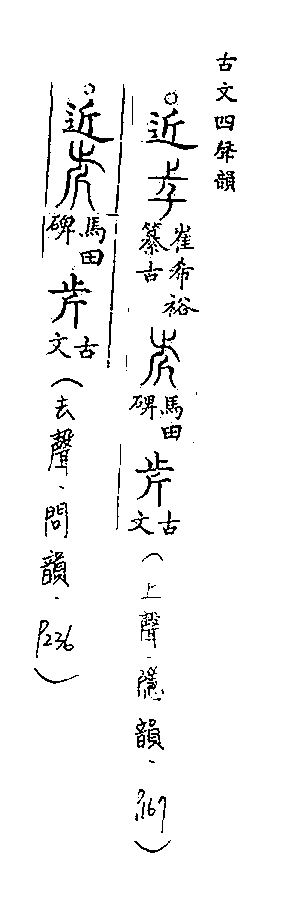 古文四聲韻
○近 𡴎 崔希裕纂古 𣥍 馬田碑 𣥎 古文(上聲、隱韻、P.167)
○近 馬田碑 古文(去聲、問韻、P.236)